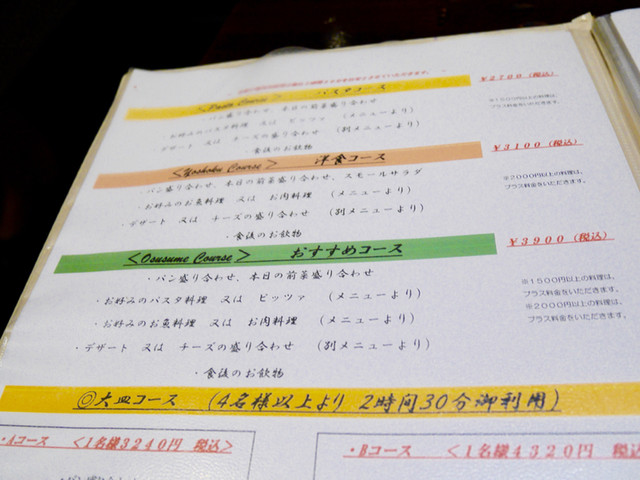 <Pasta Course> パスタコース ¥2700 (税込)
・パン盛り合わせ、本日の前菜盛り合わせ
・お好みのパスタ料理 又は ピッツァ (メニューより)
・デザート 又は チーズの盛り合わせ (別メニューより)
・食後のお飲物
※1500円以上の料理は、
プラス料金をいただきます。
<Yoshoku Course> 洋食コース ¥3100 (税込)
・パン盛り合わせ、本日の前菜盛り合わせ、スモールサラダ
・お好みのお魚料理 又は お肉料理 (メニューより)
・デザート 又は チーズの盛り合わせ (別メニューより)
・食後のお飲物
※2000円以上の料理は、
プラス料金をいただきます。
<Osusume Course> おすすめコース ¥3900 (税込)
・パン盛り合わせ、本日の前菜盛り合わせ
・お好みのパスタ料理 又は ピッツァ (メニューより)
・お好みのお魚料理 又は お肉料理 (メニューより)
・デザート 又は チーズの盛り合わせ (別メニューより)
・食後のお飲物
※1500円以上の料理は、
プラス料金をいただきます。
※2000円以上の料理は、
プラス料金をいただきます。
◎大皿コース (4名様以上より 2時間30分御利用)
・Aコース <1名様3240円 税込>
・Bコース <1名様4320円 税込